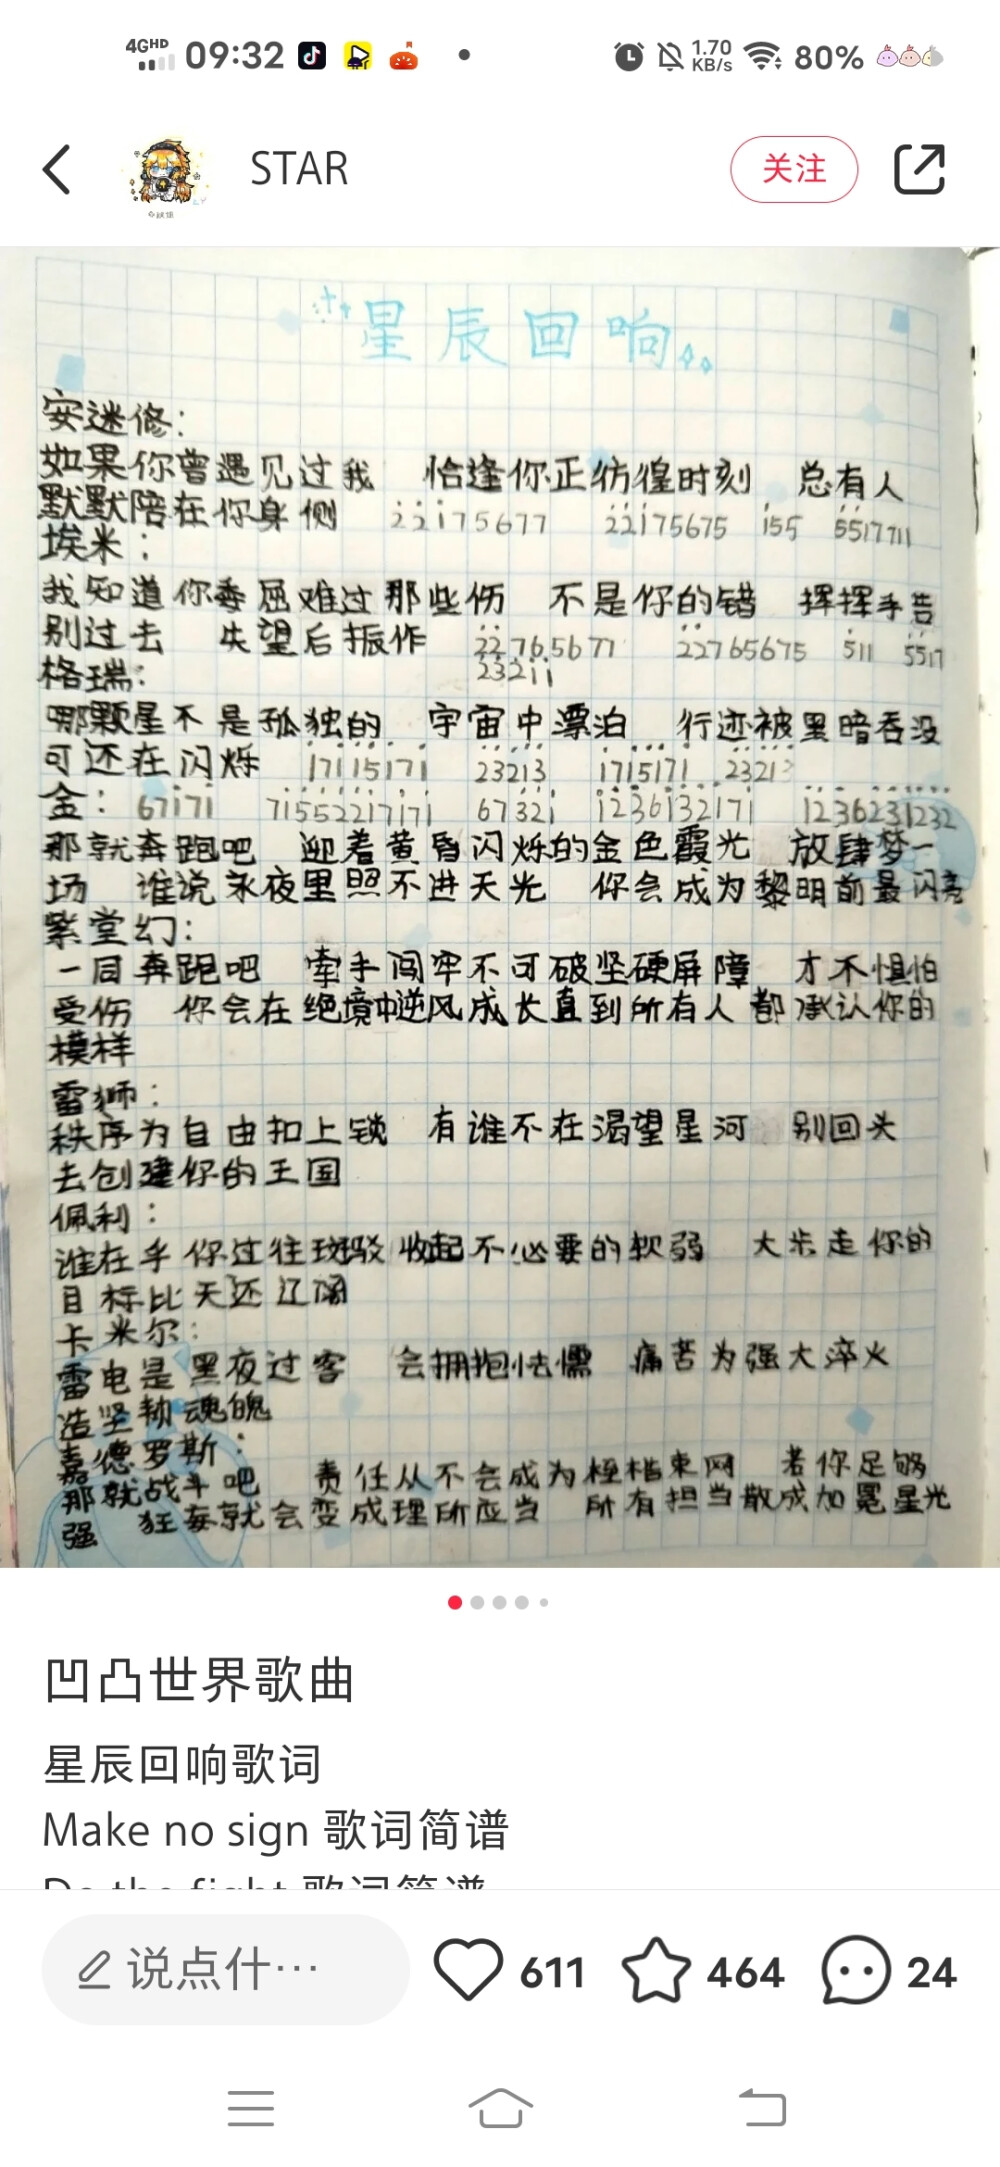 4GHD 09:32 1.70 KB/s 80%
STAR 关注
星辰回响
安迷修：
如果你曾遇见过我 恰逢你正彷徨时刻 总有人
默默陪在你身侧 22175677 22175675 155 5517711
埃米：
我知道你委屈难过那些伤 不是你的错 挥挥手告
别过去 失望后振作 22765677 22765675 511 5517
格瑞： 23211
哪颗星不是孤独的 宇宙中漂泊 行迹被黑暗吞没
可还在闪烁 17115171 23213 1715171 23213
金：67171 71552217171 67321 1236132171 1236231232
那就奔跑吧 迎着黄昏闪烁的金色霞光 放肆梦一
场 谁说永夜里照不进天光 你会成为黎明前最闪亮
紫堂幻：
一同奔跑吧 牵手闯牢不可破坚硬屏障 才不惧怕
受伤 你会在绝境中逆风成长直到所有人都承认你的
模样
雷狮：
秩序为自由扣上锁 有谁不在渴望星河 别回头
去创建你的王国
佩利：
谁在乎你过往斑驳收起不必要的软弱 大步走你的
目标比天还辽阔
卡米尔：
雷电是黑夜过客 会拥抱怯懦 痛苦为强大淬火
造坚韧魂魄
嘉德罗斯：
那就战斗吧 责任从不会成为桎梏束网 若你足够
强 狂妄就会变成理所应当 所有担当散成加冕星光
凹凸世界歌曲
星辰回响歌词
Make no sign 歌词简谱
Do the fight 歌词简谱
说点什… 611 464 24